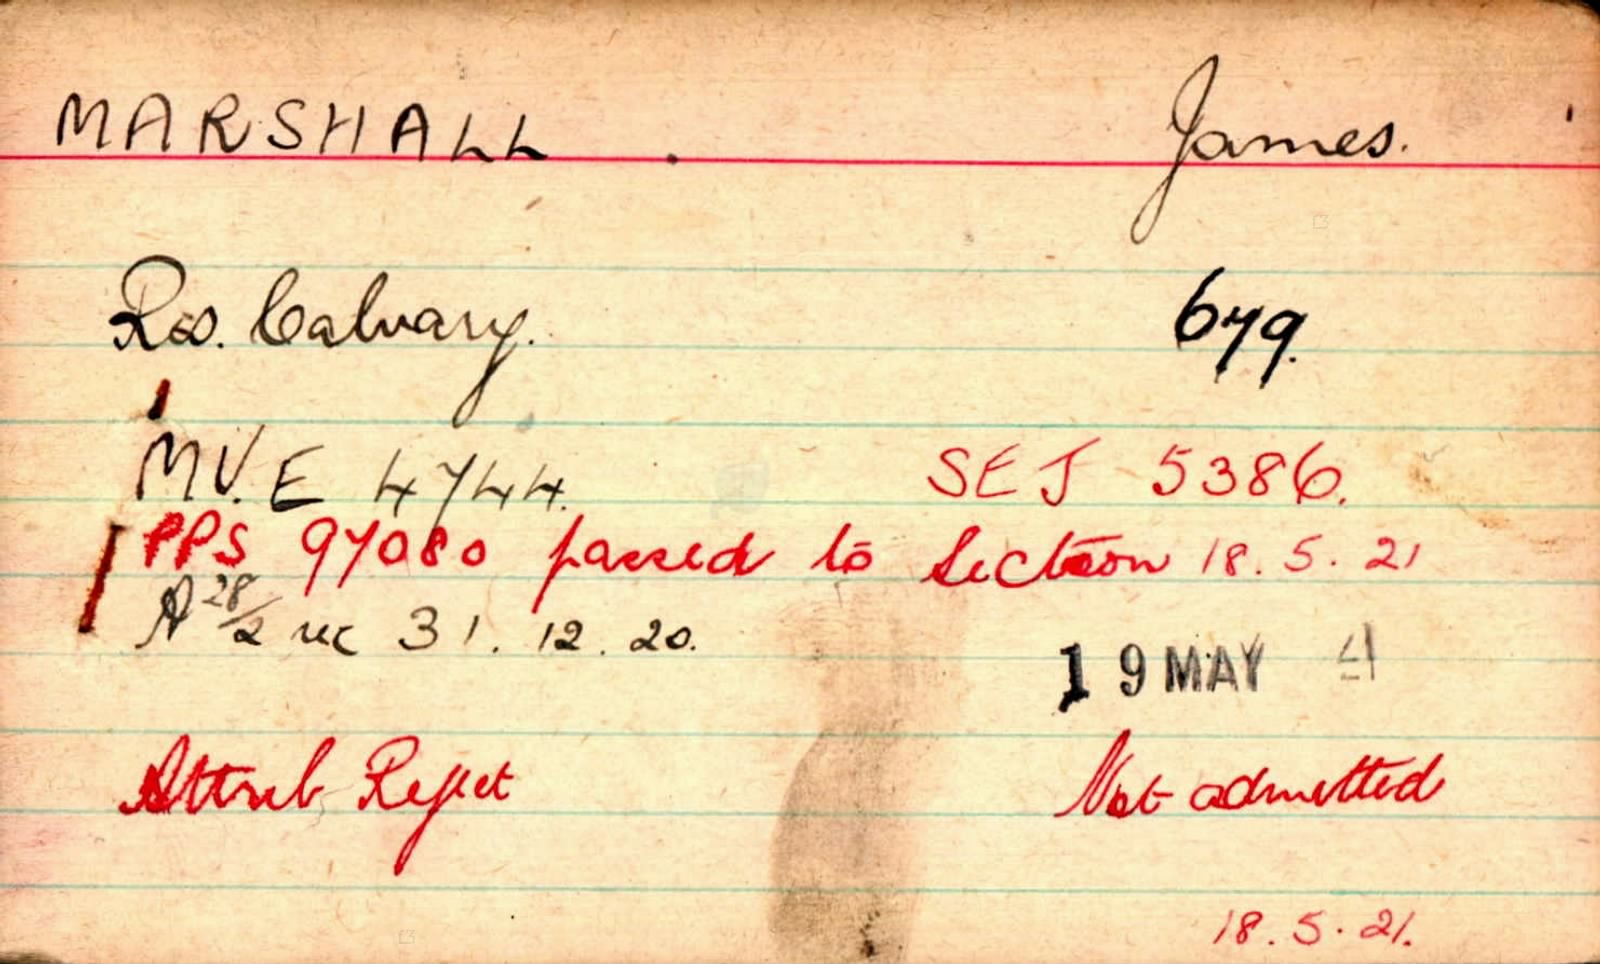 MARSHALL . James.
Res. Calvary. 679.
M.V. E 4744. SEJ 5386.
PPS 97080 passed to Section 18.5.21
A 28/2 rec 31.12.20.
19 MAY
Attrib Reject Not admitted
18.5.21.